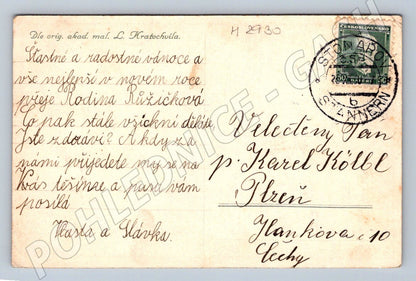 Dle orig. akad. mal. L. Kratochvíla.
H 2930
Šťastné a radostné vánoce a
vše nejlepší v novém roce
přeje Rodina Růžičková
Co pak stále všichni děláte
Jste zdrávi? A kdy z a
námi přijedete my se na
Vás těšíme a pusu vám
posílá
Vlasta a Slávka.
ČESKOSLOVENSKO
STONAŘOV
b
STANNERN
Velectěný Pan
p. Karel Kölbl
Plzeň
Hankova č 10
Čechy
POHLEDNICE - GACH